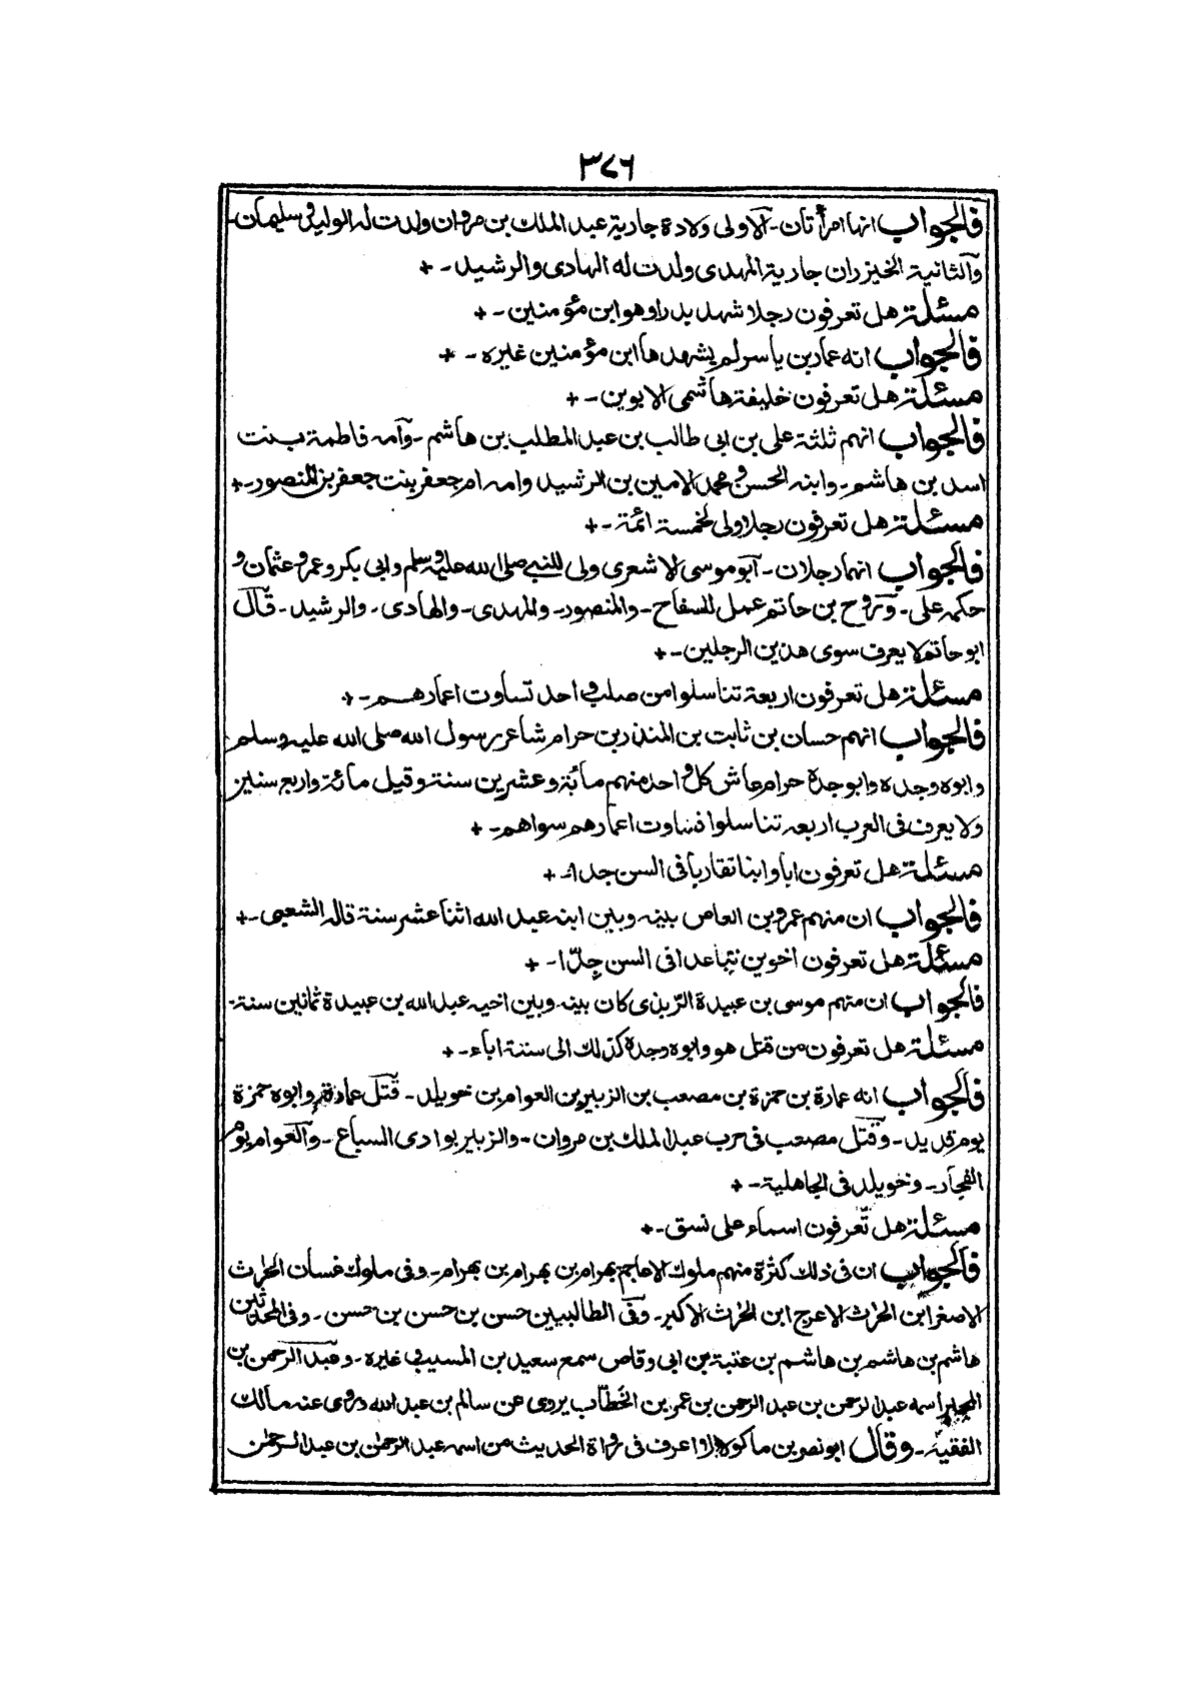 ٣٧٦
فالجواب انها امرأتان۔ آلاولى ولادة جارية عبد الملك بن مروان ولدت له الوليد و سليمان۔
وآلثانية الخيزران جارية المهدى ولدت له الهادى والرشيد۔ +
مسئلة هل تعرفون رجلا شهد بدرا وهو ابن مؤمنين۔ +
فالجواب انه عمار بن ياسر لم يشهدها ابن مؤمنين غيره۔ +
مسئلة هل تعرفون خليفة هاشمى الابوين۔ +
فالجواب انهم ثلثة على بن ابى طالب بن عبد المطلب بن هاشم۔ وآمه فاطمة بنت
اسد بن هاشم۔ وابنه الحسن و محمد الامين بن الرشيد وامه ام جعفر بنت جعفر بن المنصور۔ +
مسئلة هل تعرفون رجلا ولى لخمسة ائمة۔ +
فالجواب انهما رجلان۔ آبو موسى الاشعرى ولى للنبى صلى الله عليه وسلم وابى بكر وعمر وعثمان و
حكمه على۔ وروح بن حاتم عمل للسفاح۔ والمنصور۔ والمهدى۔ والهادى۔ والرشيد۔ قال
ابو حاتم لا يعرف سوى هذين الرجلين۔ +
مسئلة هل تعرفون اربعة تناسلوا من صلب واحد تساوت اعمارهم۔ +
فالجواب انهم حسان بن ثابت بن المنذر بن حرام شاعر رسول الله صلى الله عليه وسلم
وابوه وجده وابو جده حرام عاش كل واحد منهم مائة وعشرين سنة وقيل مائة واربع سنين
ولا يعرف فى العرب اربعة تناسلوا فتساوت اعمارهم سواهم۔ +
مسئلة هل تعرفون ابا وابنا تقاربا فى السن جدا۔ +
فالجواب ان منهم عمرو بن العاص بينه وبين ابنه عبد الله اثنا عشر سنة قاله الشعبى۔ +
مسئلة هل تعرفون اخوين تباعدا فى السن جدّا۔ +
فالجواب ان منهم موسى بن عبيدة الرّبذى كان بينه وبين اخيه عبد الله بن عبيدة ثمانين سنة۔
مسئلة هل تعرفون من قتل هو وابوه وجده كذلك الى ستة اباء۔ +
فالجواب انه عمارة بن حمزة بن مصعب بن الزبير بن العوام بن خويلد۔ قتل عمارة وابوه حمزة
يوم قديد۔ وقتل مصعب فى حرب عبد الملك بن مروان۔ والزبير بوادى السباع۔ وآلعوام يوم
الفجار۔ وخويلد فى الجاهلية۔ +
مسئلة هل تعرفون اسماء على نسق۔ +
فالجواب ان فى ذلك كثرة منهم ملوك الاعاجم بهرام بن بهرام بن بهرام۔ وفى ملوك غسان الحرث
الاصغر ابن الحرث الاعرج ابن الحرث الاكبر۔ وفى الطالبيين حسن بن حسن بن حسن۔ وفى المحدثين
هاشم بن هاشم بن هاشم بن عتبة بن ابى وقاص سمع سعيد بن المسيب و غيره۔ وعبد الرحمن بن
المجبر اسمه عبد الرحمن بن عبد الرحمن بن عمر بن الخطّاب يروى عن سالم بن عبد الله وروى عنه مالك
الفقيه۔ وقال ابو نصر بن ماكولا لا اعرف فى رواة الحديث من اسمه عبد الرحمٰن بن عبد الرحمٰن